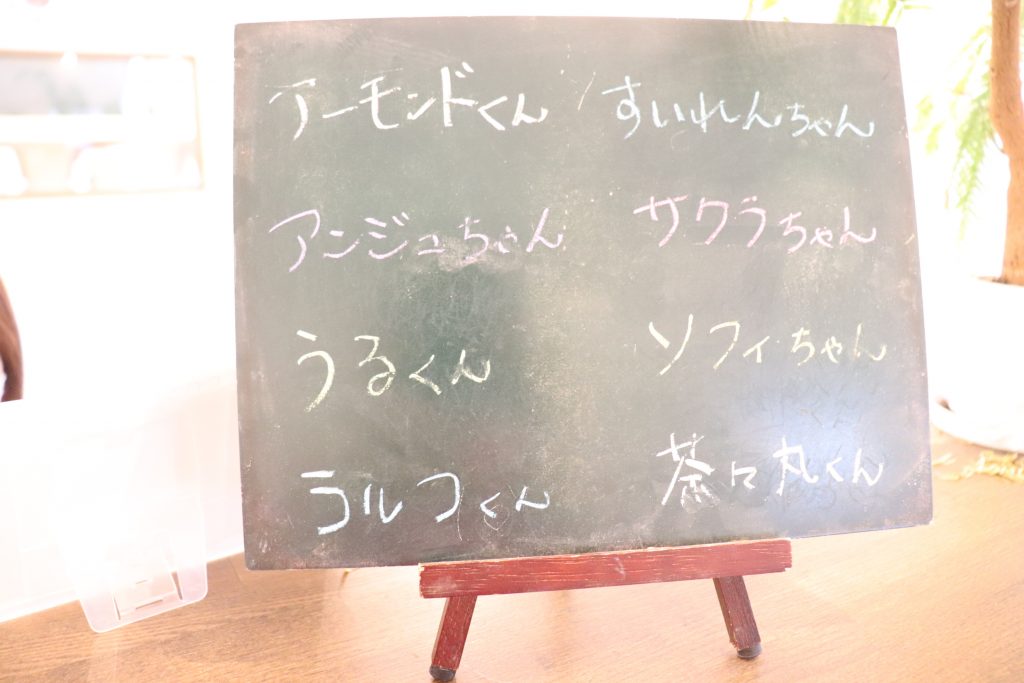 アーモンドくん
アンジュちゃん
うるくん
ラルフくん
すいれんちゃん
サクラちゃん
ソフィちゃん
茶々丸くん